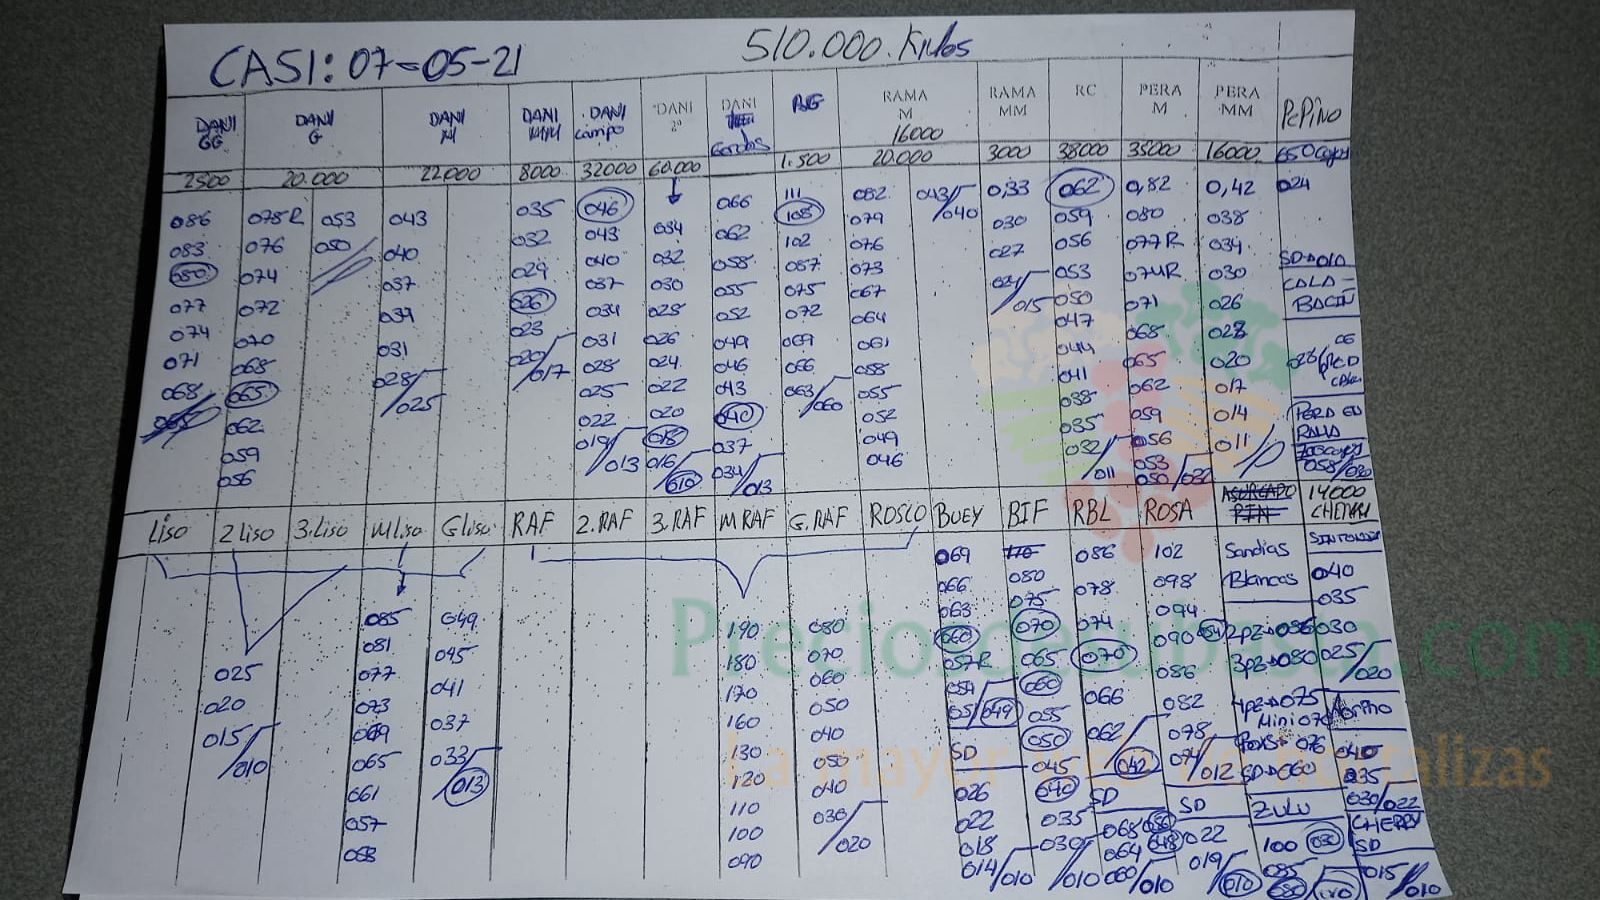 CASI: 07-05-21 510.000 Kilos
DANI GG DANI G DANI M DANI MM DANI campo DANI 2ª DANI Gordos RAMA M RAMA MM RC PERA M PERA MM PePiNO
16000
2500 20.000 22.000 8000 32000 60.000 1.500 20.000 3000 38000 35000 16000 650 cajas
086 078R 053 043 035 046 034 066 111 082 043/040 0,33 062 0,82 0,42 024
083 076 050 040 032 043 032 062 108 079 030 059 080 038
080 074 037 029 040 030 058 102 076 027 056 077R 034 SD→010
077 072 034 026 037 028 055 087 073 053 074R 030 CALA=
074 070 031 023 034 026 052 075 067 /015 050 071 026 BACIN
071 068 028/025 020/017 031 024 049 072 064 047 068 020
068 065 028 022 046 069 061 044 065 017
065 062 025 020 043 066 058 041 062 014 PERA EN
059 022 018 040 063/060 055 038 059 011 RAMA
056 019/013 016/010 037 052 035 056 058/030
034/013 049 032/011 053
046 050/030
Liso 2 Liso 3.Liso M Liso G Liso RAF 2.RAF 3.RAF M RAF G.RAF ROSCO BUEY BIF RBL ROSA 14000 CHERRY
025 085 049 190 080 069 110 086 102 Sandias
020 081 045 180 070 066 080 078 098 Blancas 040
015/010 077 041 170 060 063 075 074 094 035
073 037 160 050 060 070 070 090 2pz→086 030
069 033/013 130 040 057R 065 066 086 3pz→080 025/020
065 120 030 054 060 062/042 082 4pz→075
061 110 040 051/049 055 078 Mini 070
057 100 030/020 SD 050 SD 074/012 SD→060 035
053 090 026 045 068 SD ZULU 030/022
022 040 064 022 100 CHERRY SD
018 035 060/010 019/010 085 015/010
014/010 030/010 080
Preciosdesubasta.com
La mayor